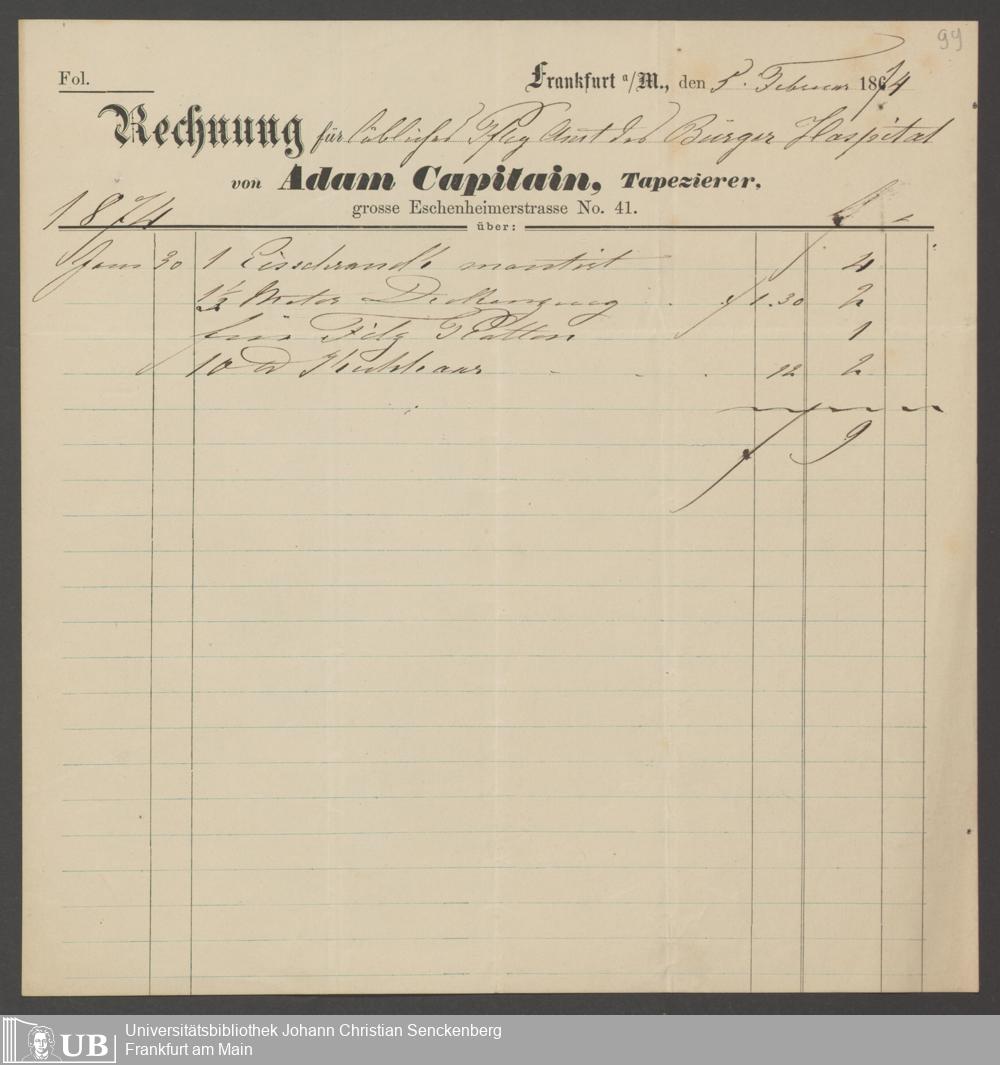 99
Fol.
Frankfurt a/M., den 5. Februar 1874
Rechnung für löbliches Pfleg Amt des Bürger Hospital
von Adam Capitain, Tapezierer,
grosse Eschenheimerstrasse No. 41.
1874
über:
Janr 30 1 Eisschrank montirt 4
1½ Meter 1.30 2
für Filz Platten 1
10 12 2
f 9
Universitätsbibliothek Johann Christian Senckenberg
Frankfurt am Main
UB